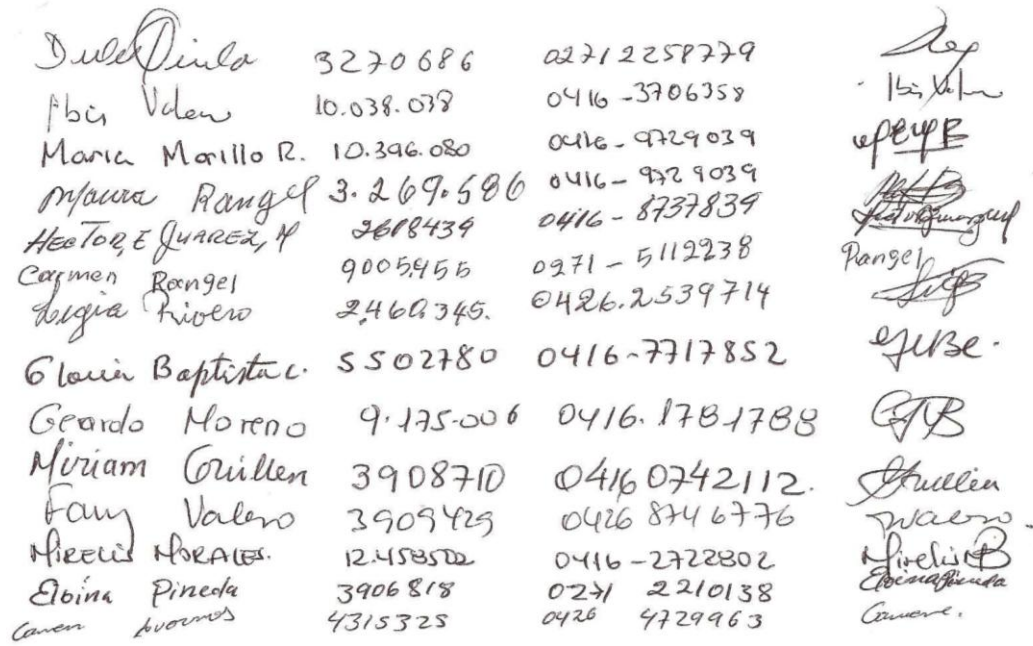 3270686 0271 2258779
Valen 10.038.038 0416-3706358
Maria Morillo R. 10.396.080 0416-9729039
Maura Rangel 3.269.586 0416-9729039
HECTOR, E JUAREZ, M 2618439 0416-8737839
Carmen Rangel 9005455 0271-5112238 Rangel
Ligia Rivero 2.460.345. 0426.2539714
Gloria Baptista c. 5502780 0416-7717852
Gerardo Moreno 9.175.006 0416.1781788
Miriam Guillen 3908710 0416 0742112.
Fany Valero 3909429 0426 8746776
MIRELIS MORALES. 12.458502 0416-2722802
Eloina Pineda 3906818 0271 2210138 Eloina Pineda
4315325 0426 4729963